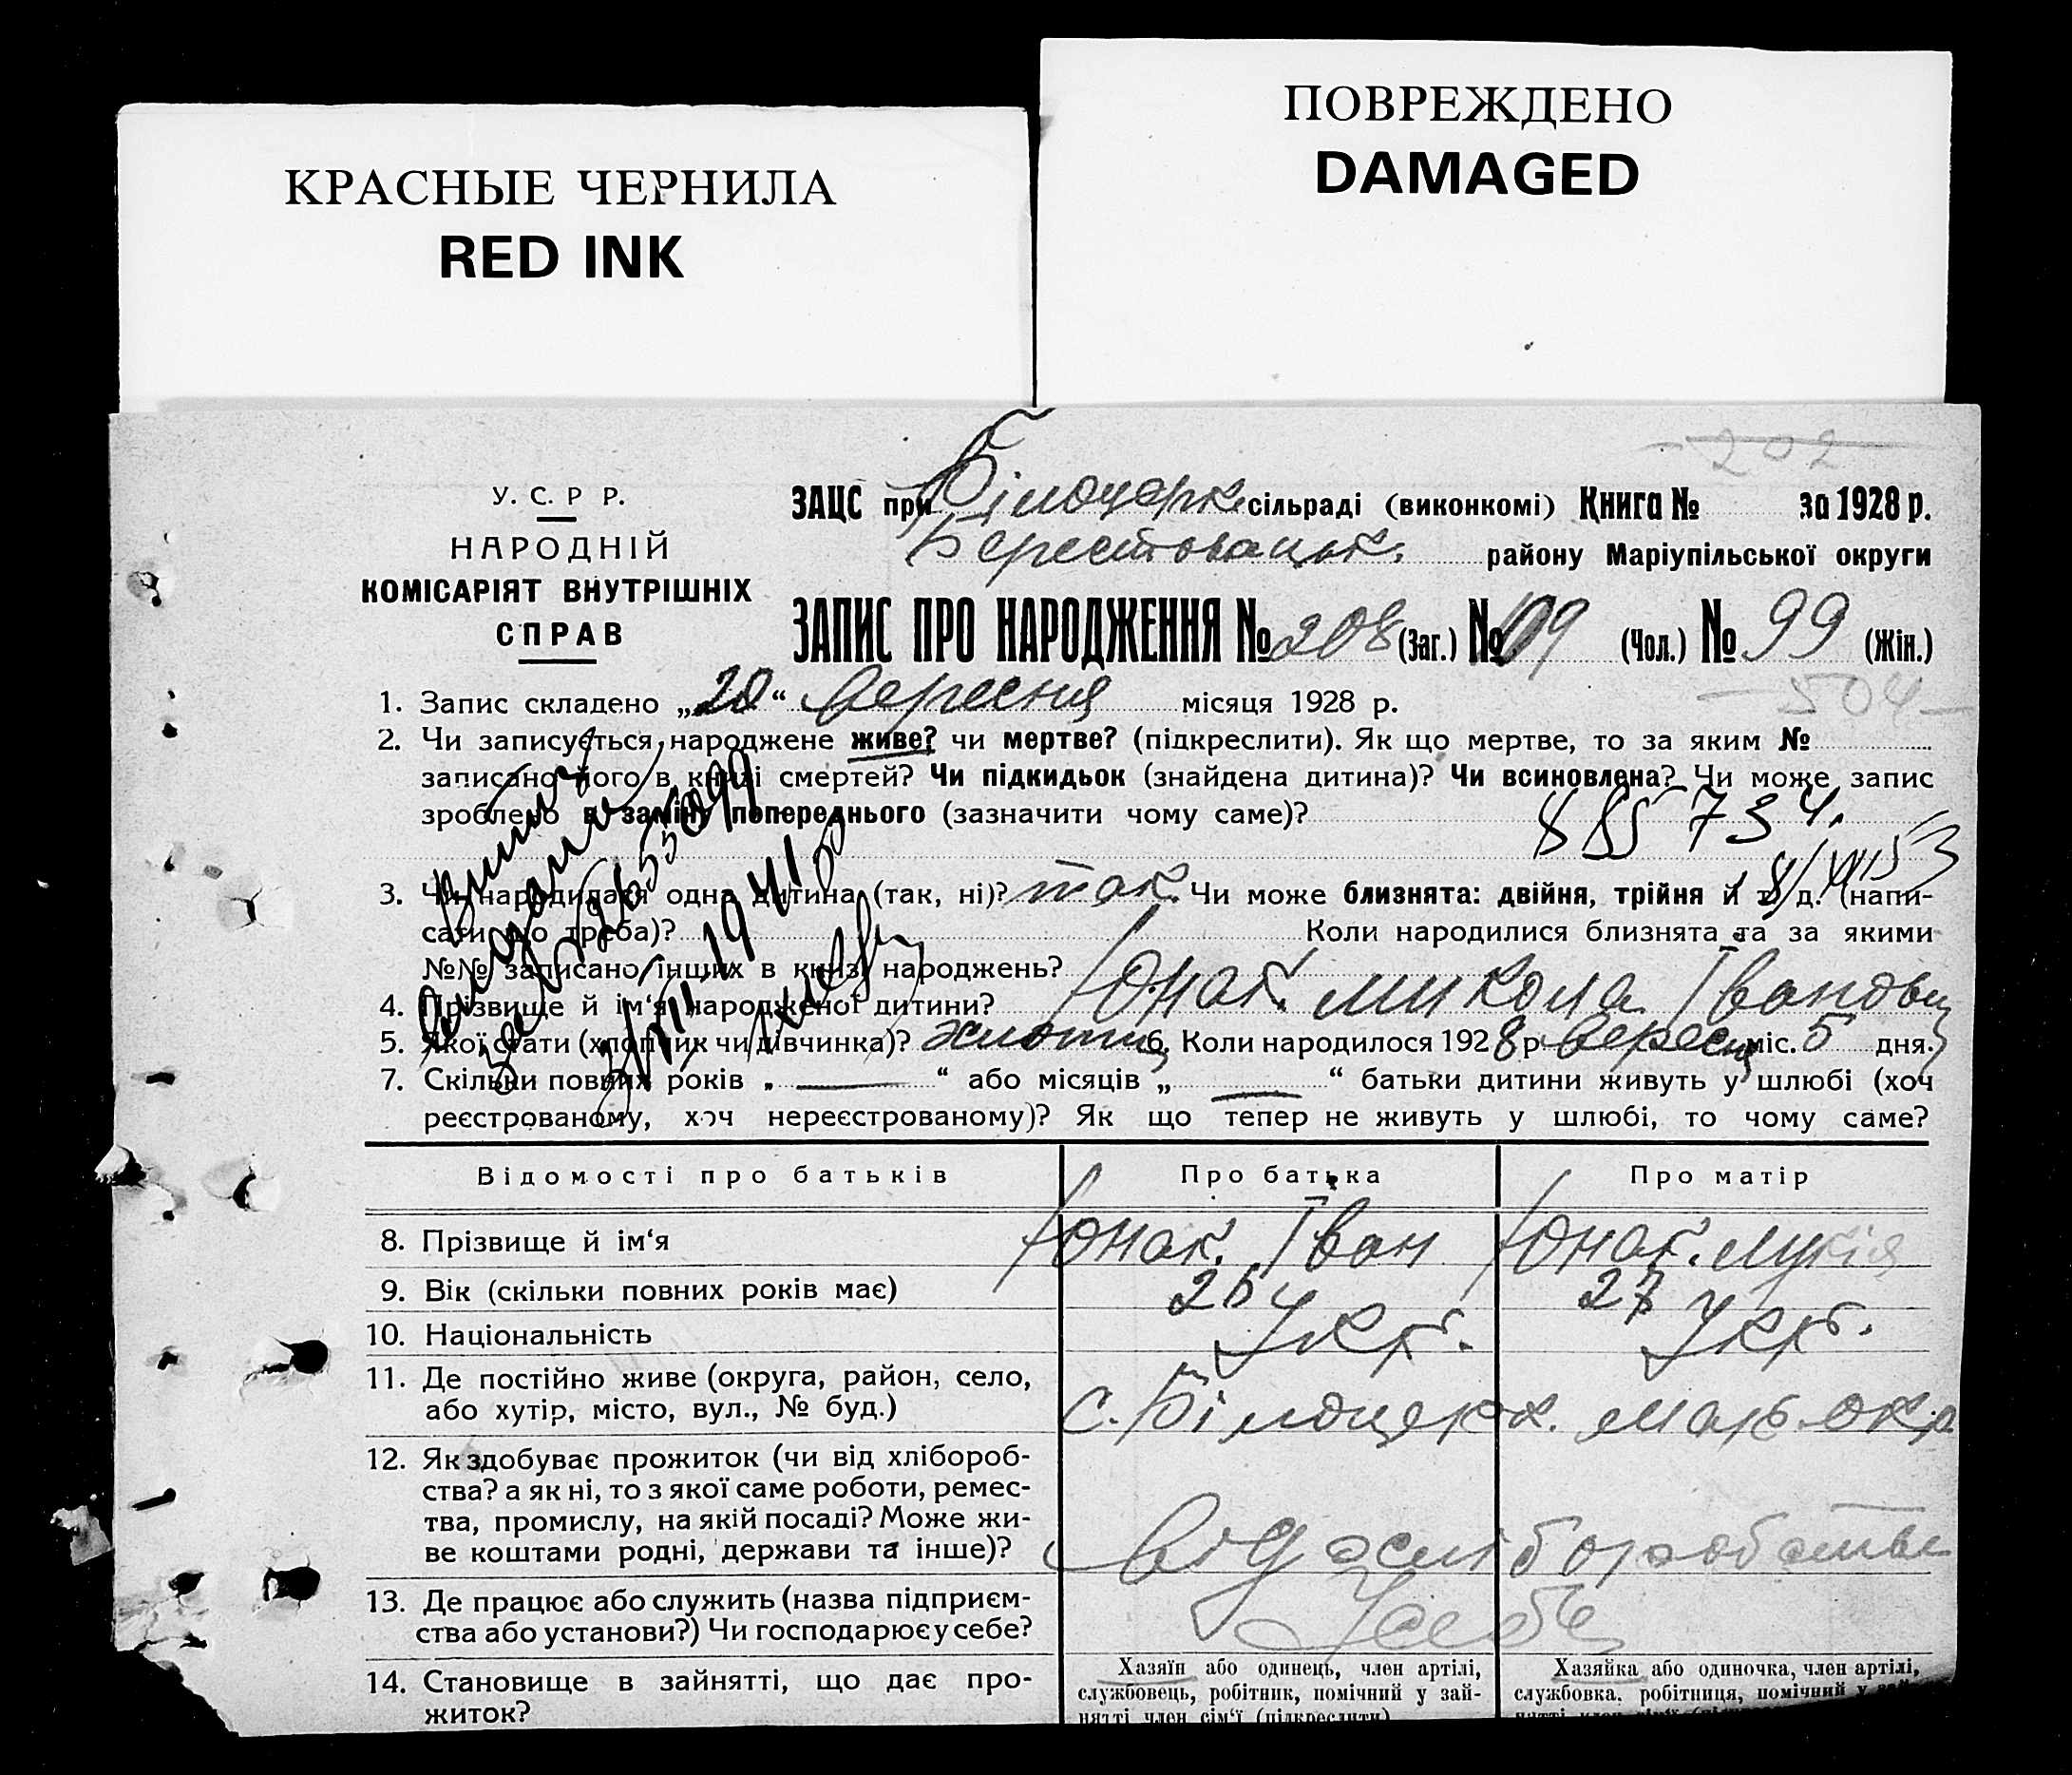 ПОВРЕЖДЕНО
DAMAGED
КРАСНЫЕ ЧЕРНИЛА
RED INK
202
У. С. Р Р.
НАРОДНІЙ
КОМІСАРІЯТ ВНУТРІШНІХ
СПРАВ
ЗАЦС при Білоцерк. сільраді (виконкомі) Книга № за 1928 р.
Берестовацьк. району Маріупільської округи
ЗАПИС ПРО НАРОДЖЕННЯ № 208 (Заг.) № 109 (Чол.) № 99 (Жін.)
504
1. Запис складено „20“ вересня місяця 1928 р.
2. Чи записується народжене живе? чи мертве? (підкреслити). Як що мертве, то за яким №
записано його в книзі смертей? Чи підкидьок (знайдена дитина)? Чи всиновлена? Чи може запис
зроблено в заміну попереднього (зазначити чому саме)?
885734.
3. Чи народилася одна дитина (так, ні)? так. Чи може близнята: двійня, трійня й т. д. (напи-
сати що треба)? Коли народилися близнята та за якими
№№ записано інших в книзі народжень?
4. Прізвище й ім‘я народженої дитини? Юнак. Микола Іванович
5. Якої стати (хлопчик чи дівчинка)? хлопчиц 6. Коли народилося 1928 р. вересня міс. 5 дня.
7. Скільки повних років „ “ або місяців „ “ батьки дитини живуть у шлюбі (хоч
реєстрованому, хоч нереєстрованому)? Як що тепер не живуть у шлюбі, то чому саме?
Відомості про батьків Про батька Про матір
8. Прізвище й ім‘я Юнак. Іван Юнак. Лукія
9. Вік (скільки повних років має) 26 27
10. Національність Укр. Укр.
11. Де постійно живе (округа, район, село,
або хутір, місто, вул., № буд.) с. Білоцерк. Мар. окр.
12. Як здобуває прожиток (чи від хлібороб-
ства? а як ні, то з якої саме роботи, ремес-
тва, промислу, на якій посаді? Може жи-
ве коштами родні, держави та інше)? Від хліборобства
13. Де працює або служить (назва підприєм-
ства або установи?) Чи господарює у себе? У себе
14. Становище в зайнятті, що дає про-
житок?
Хазяїн або одинець, член артілі,
службовець, робітник, помічний у зай-
нятті член сім‘ї (підкреслити)
Хазяйка або одиночка, член артілі,
службовка, робітниця, помічний у зай-